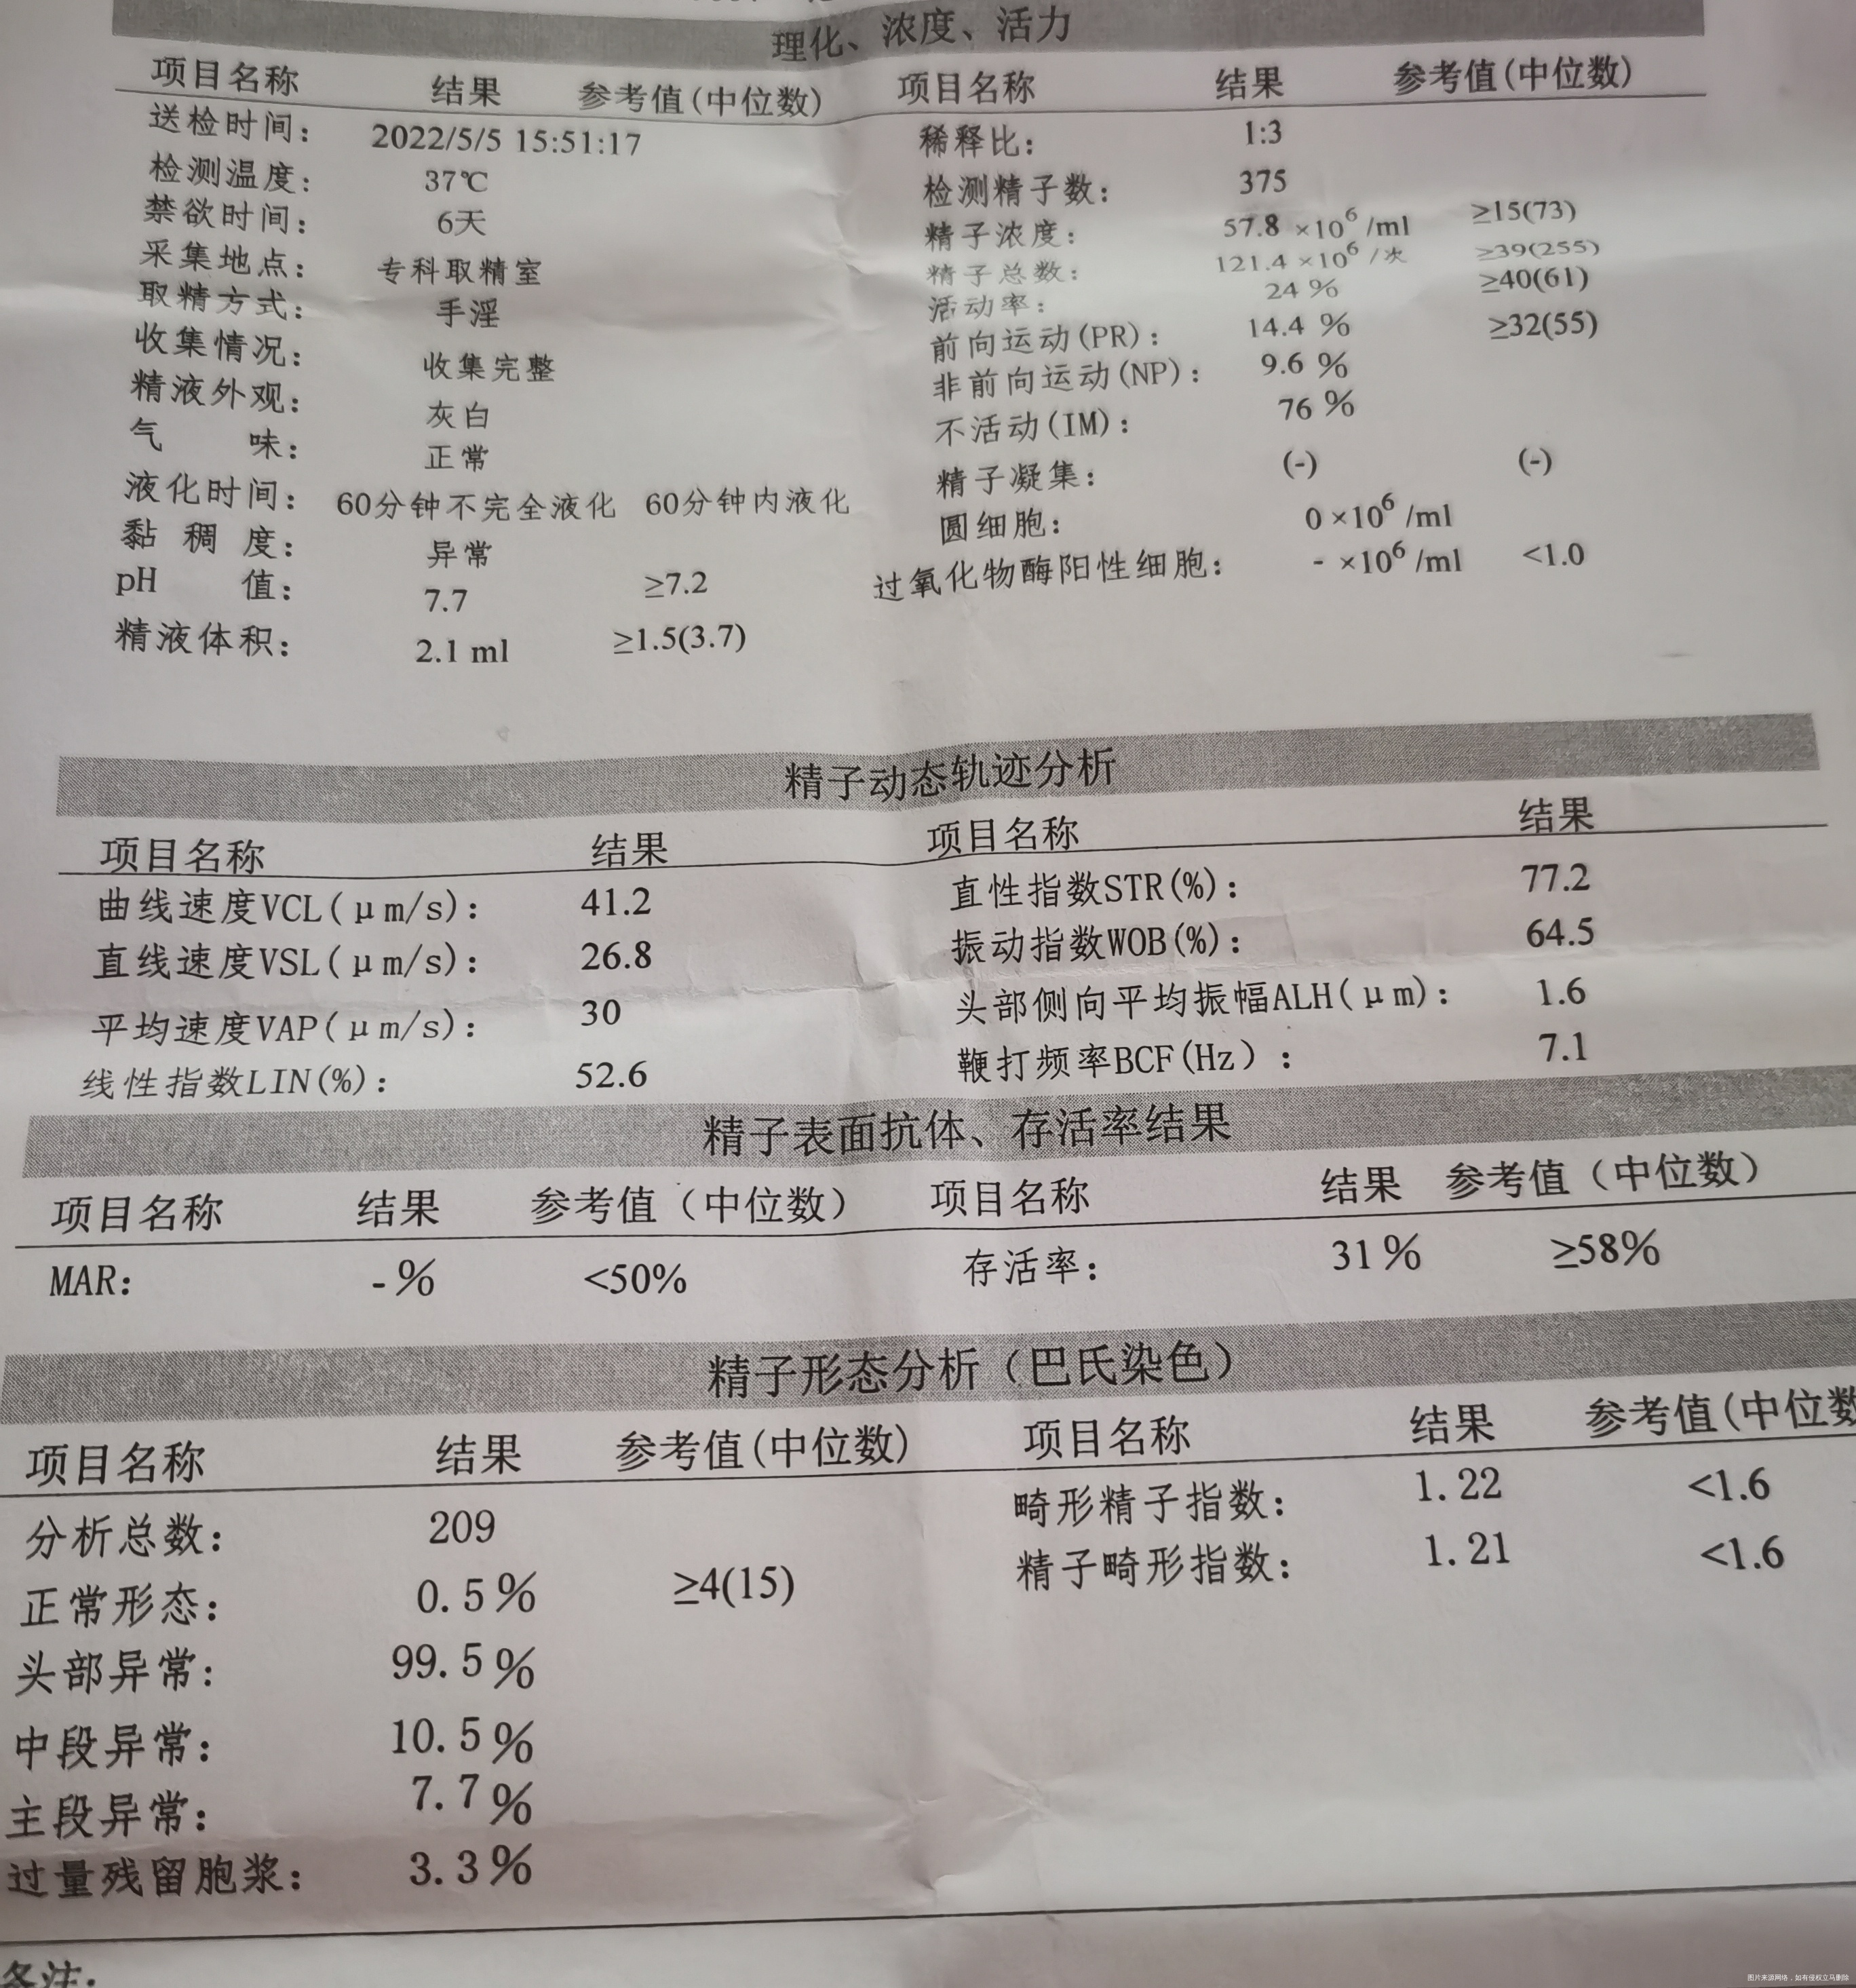 理化、浓度、活力
项目名称 结果 参考值(中位数) 项目名称 结果 参考值(中位数)
送检时间: 2022/5/5 15:51:17 稀释比: 1:3
检测温度: 37℃ 检测精子数: 375
禁欲时间: 6天 精子浓度: 57.8 ×10⁶/ml ≥15(73)
采集地点: 专科取精室 精子总数: 121.4 ×10⁶/次 ≥39(255)
取精方式: 手淫 活动率: 24 % ≥40(61)
收集情况: 收集完整 前向运动(PR): 14.4 % ≥32(55)
精液外观: 灰白 非前向运动(NP): 9.6 %
气 味: 正常 不活动(IM): 76 %
液化时间: 60分钟不完全液化 60分钟内液化 精子凝集: (-) (-)
黏 稠 度: 异常 圆细胞: 0 ×10⁶/ml
pH 值: 7.7 ≥7.2 过氧化物酶阳性细胞: - ×10⁶/ml <1.0
精液体积: 2.1 ml ≥1.5(3.7)
精子动态轨迹分析
项目名称 结果 项目名称 结果
曲线速度VCL(μm/s): 41.2 直性指数STR(%): 77.2
直线速度VSL(μm/s): 26.8 振动指数WOB(%): 64.5
平均速度VAP(μm/s): 30 头部侧向平均振幅ALH(μm): 1.6
线性指数LIN(%): 52.6 鞭打频率BCF(Hz): 7.1
精子表面抗体、存活率结果
项目名称 结果 参考值(中位数) 项目名称 结果 参考值(中位数)
MAR: -% <50% 存活率: 31% ≥58%
精子形态分析(巴氏染色)
项目名称 结果 参考值(中位数) 项目名称 结果 参考值(中位数
分析总数: 209 畸形精子指数: 1.22 <1.6
正常形态: 0.5% ≥4(15) 精子畸形指数: 1.21 <1.6
头部异常: 99.5%
中段异常: 10.5%
主段异常: 7.7%
过量残留胞浆: 3.3%
备注:
图片来源网络，如有侵权立马删除